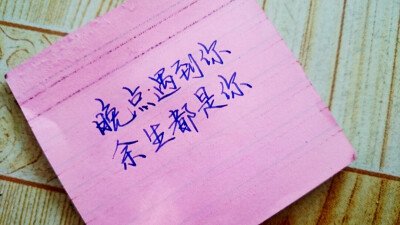 晚点遇到你
余生都是你